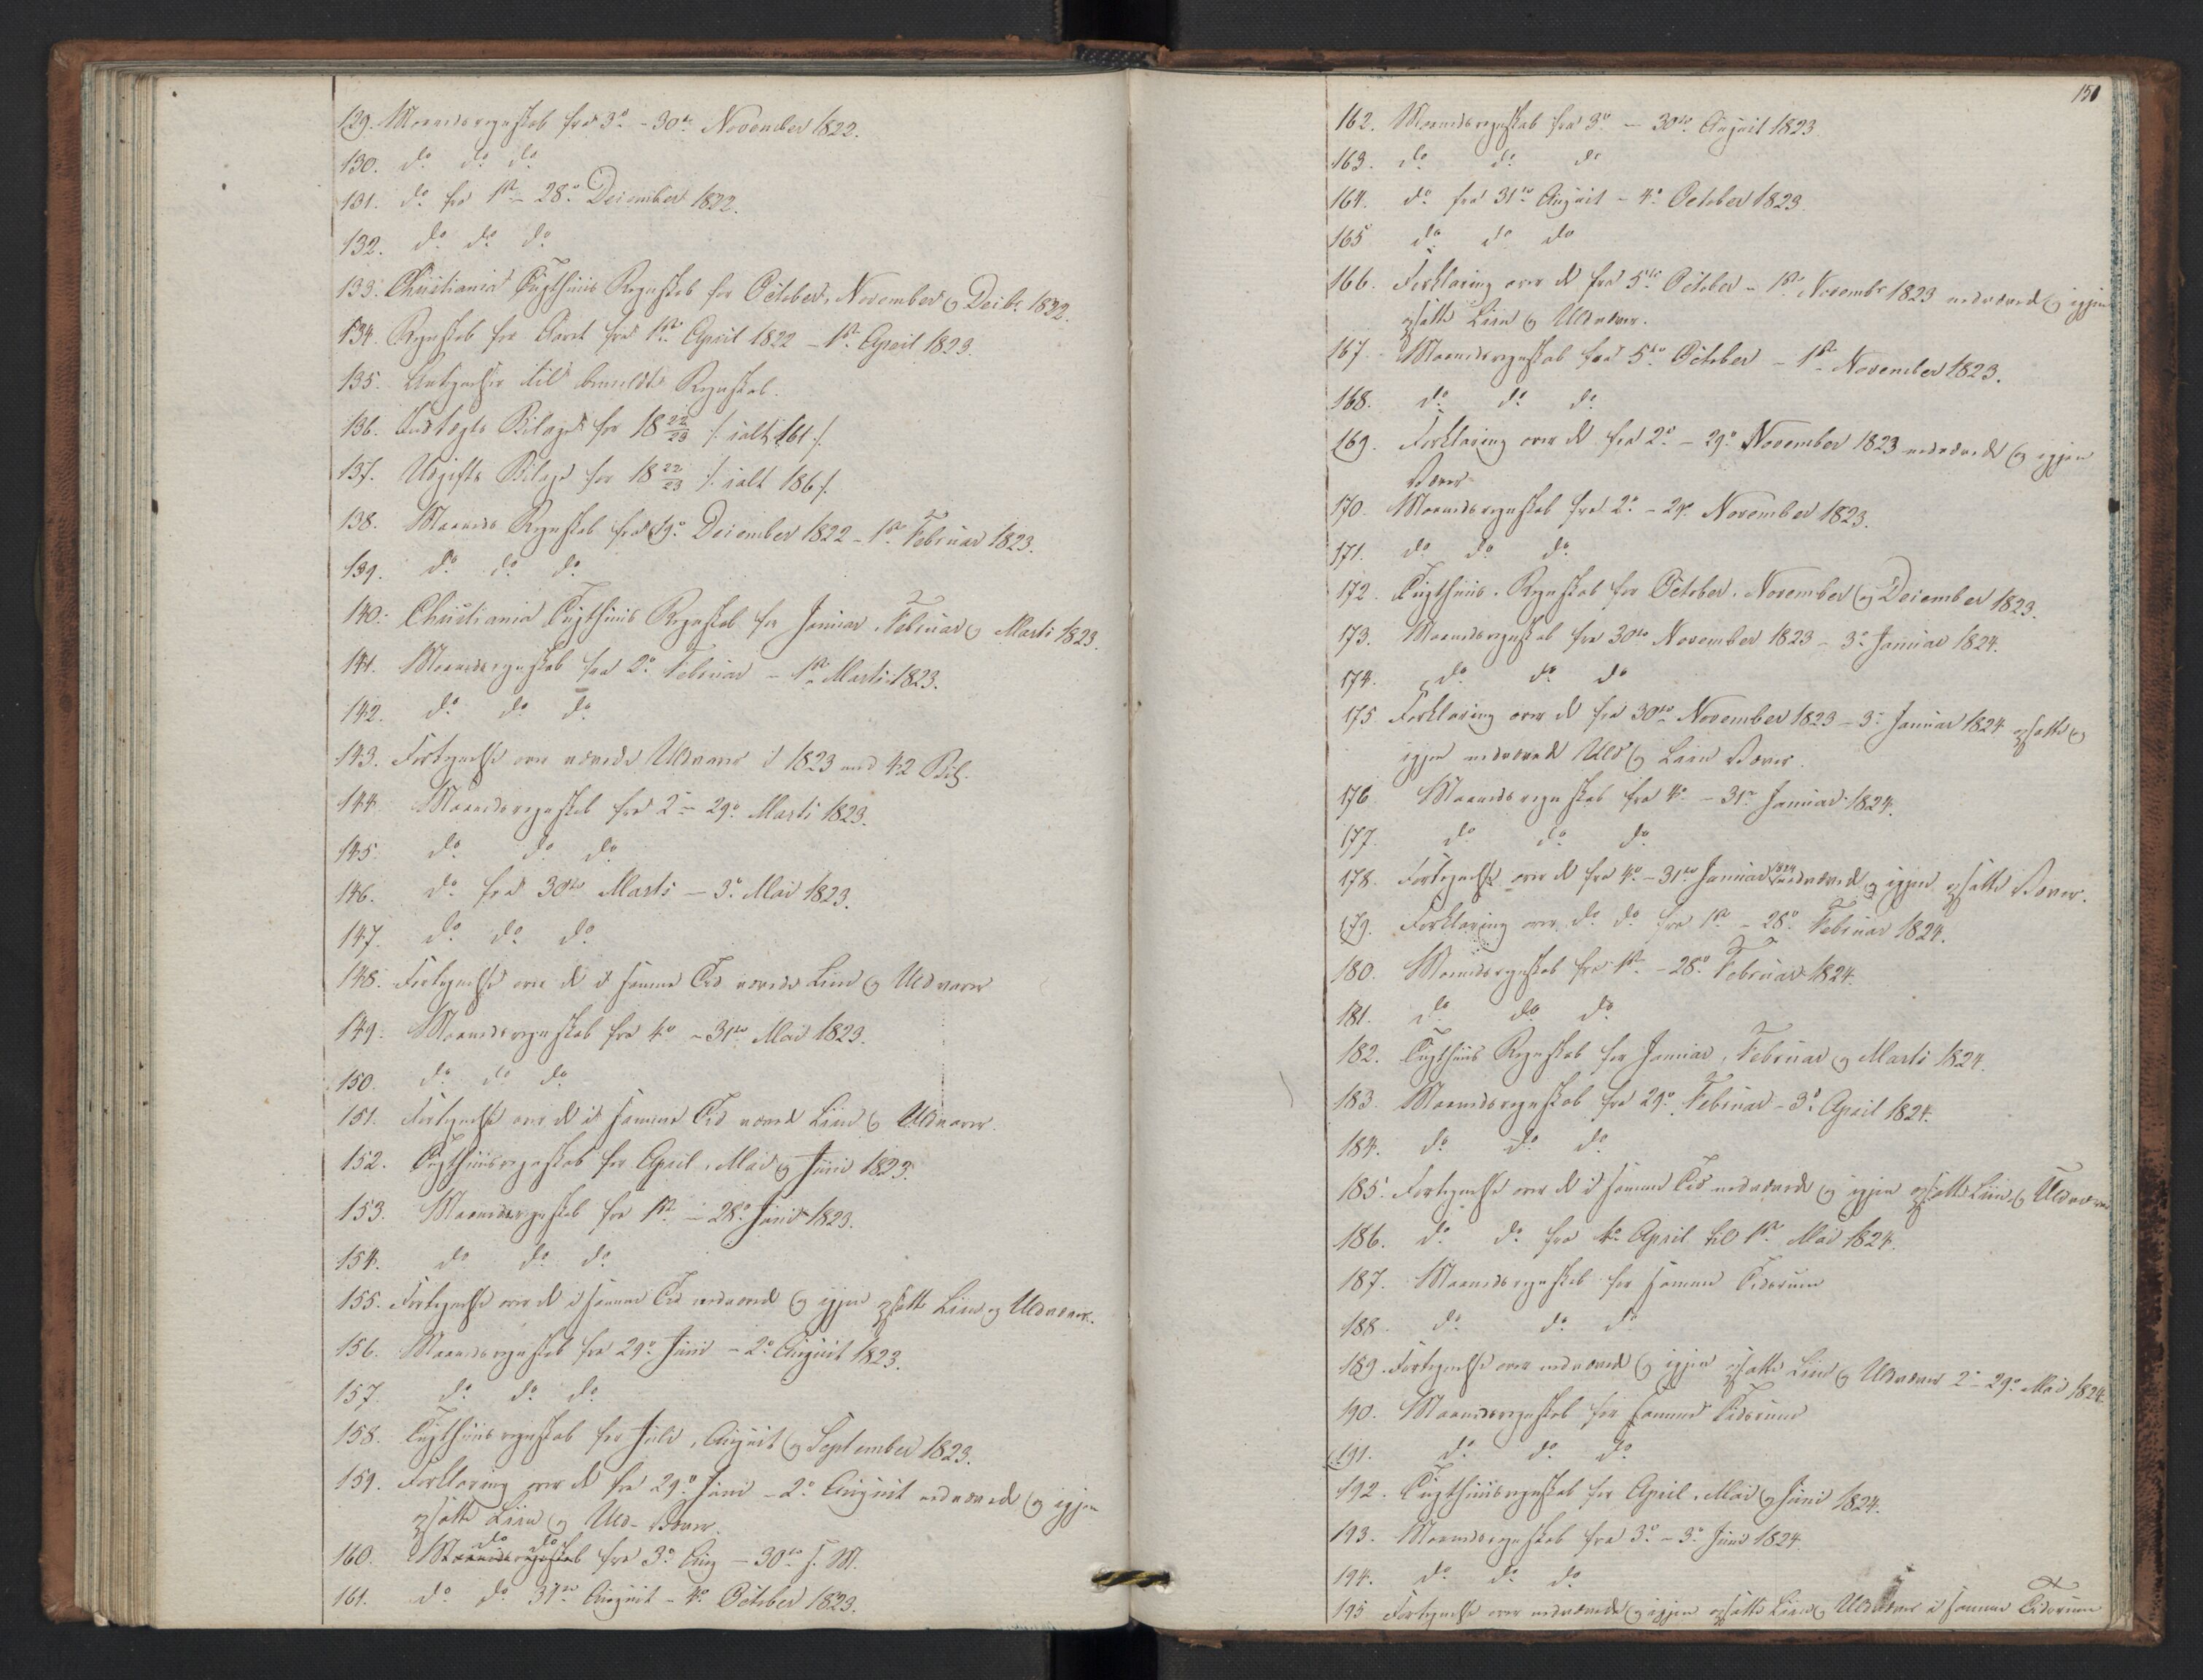 129. Maanedsregnskab fra 3º - 30te November 1822.
130. dº dº dº
131. dº fra 1ste - 28º December 1822.
132. dº dº dº
133. Christiania Tugthuus Regnskab for October, November og Decbr. 1822.
134. Regnskab for Aaret fra 1ste April 1822 - 1ste April 1823.
135. Antegnelser til bemeldte Regnskab.
136. Indtægts Bilager for 18 22/23 /: ialt 161 :/
137. Udgifts Bilage for 18 22/23 /: ialt 186 :/
138. Maaneds Regnskab fra 29º December 1822 - 1ste Februar 1823.
139. dº dº dº
140. Christiania Tugthuus Regnskab for Januar, Februar og Marts 1823.
141. Maanedsregnskab fra 2º Februar - 1ste Marts 1823.
142. dº dº dº
143. Fortegnelse over vævede Uldvarer i 1823 med 42 Bil.
144. Maanedsregnskab fra 2º - 29º Marts 1823.
145. dº dº dº
146. dº fra 30te Marts - 3º Mai 1823.
147. dº dº dº
148. Fortegnelse over de i samme Tid vævede Lin og Uldvarer
149. Maanedsregnskab fra 4º - 31te Mai 1823.
150. dº dº dº
151. Fortegnelse over de i samme Tid vævede Liin og Uldvarer.
152. Tugthuusregnskab for April, Mai og Juni 1823.
153. Maanedsregnskab fra 1ste - 28º Juni 1823.
154. dº dº dº
155. Fortegnelse over de i samme Tid nedvævede og igjen opsatte Liin og Uldvæver.
156. Maanedsregnskab fra 29º Juni - 2º August 1823.
157. dº dº dº
158. Tugthuusregnskab for Juli, August og September 1823.
159. Forklaring over de fra 29º Juni - 2º August nedvævede og igjen
opsatte Liin og Uld-Væver.
160. dº dº fra 3º Aug - 30te s. M.
161. dº dº 31te August - 4º October 1823.
150
162. Maanedsregnskab fra 3º - 30te August 1823.
163. dº dº dº
164. dº fra 31te August - 4º October 1823.
165 dº dº dº
166. Forklaring over de fra 5te October - 1ste Novembr 1823 nedvævede og igjen
opsatte Liin og Uldvæver.
167. Maanedsregnskab fra 5te October - 1ste November 1823.
168. dº dº dº
169. Forklaring over de fra 2º - 29º November 1823 nedvævede og igjen
Væver
170. Maanedsregnskab fra 2º - 29º November 1823.
171. dº dº dº
172. Tugthuus-Regnskab for October, November og December 1823.
173. Maanedsregnskab fra 30te November 1823 - 3º Januar 1824.
174. dº dº dº
175 Forklaring over de fra 30te November 1823 - 3º Januar 1824 opsatte og
igjen nedvævede Uld og Liin Væver.
176 Maanedsregnskab fra 4º - 31te Januar 1824.
177. dº dº dº
178. Fortegnelse over de fra 4º - 31te Januar 1824 nedvævede og igjen opsatte Væver.
179. Forklaring over dº dº fra 1ste - 28º Februar 1824.
180. Maanedsregnskab fra 1ste - 28º Februar 1824.
181. dº dº dº
182. Tugthuus Regnskab for Januar, Februar og Marts 1824.
183. Maanedsregnskab fra 29º Februar - 3º April 1824.
184. dº dº dº
185. Fortegnelse over de i samme Tid nedvævede og igjen opsatte Liin og Uldvæver
186. dº dº fra 4º April til 1ste Mai 1824.
187. Maanedsregnskab for samme Tidsrum
188. dº dº dº
189. Fortegnelse over nedvævede og igjen opsatte Liin og Uldvæver 2º - 29º Mai 1824.
190. Maanedsregnskab for samme Tidsrum
191. dº dº dº
192. Tugthuusregnskab for April, Mai og Juni 1824.
193. Maanedsregnskab fra 3º - 3º Juni 1824.
194. dº dº dº
195 Fortegnelse over nedvævede og igjen opsatte Liin og Uldvæver i samme Tidsrum